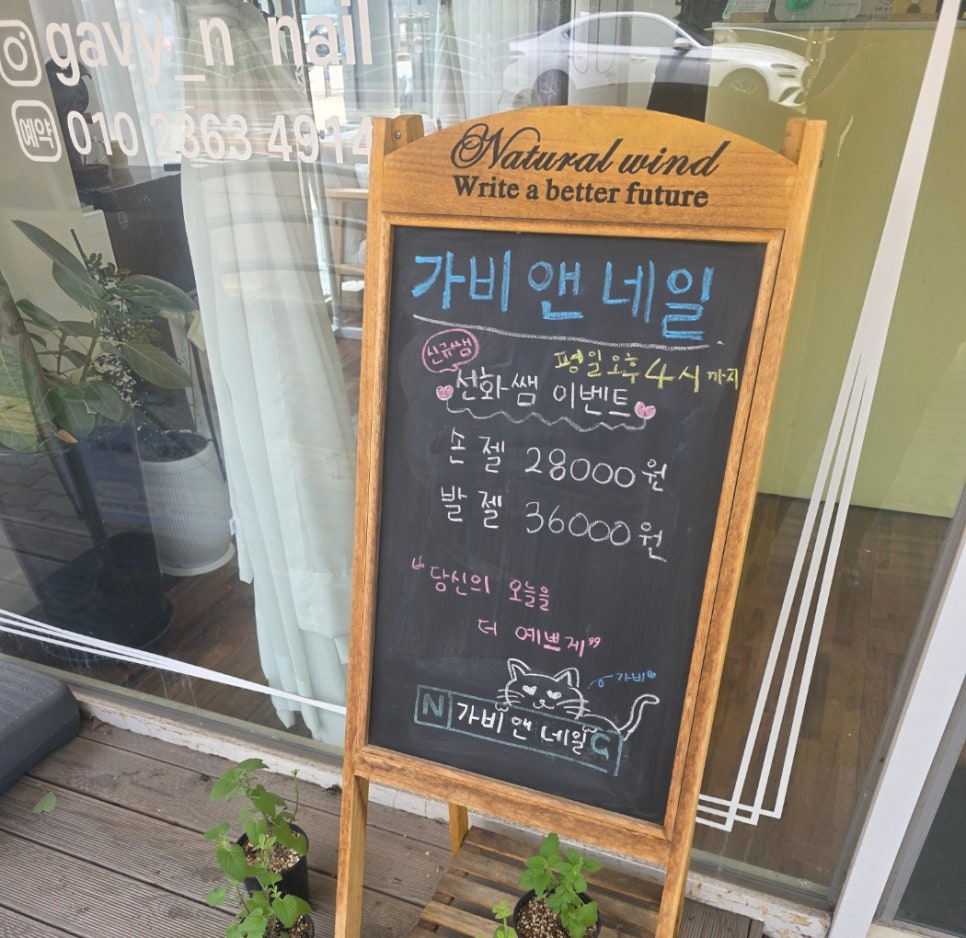 gavy_n_nail
예약 010 2363 4914
Natural wind
Write a better future
가비앤네일
신규쌤
평일오후 4시까지
선화쌤 이벤트
손젤 28000원
발젤 36000원
"당신의 오늘을
더 예쁘게"
가비
N 가비앤네일 G